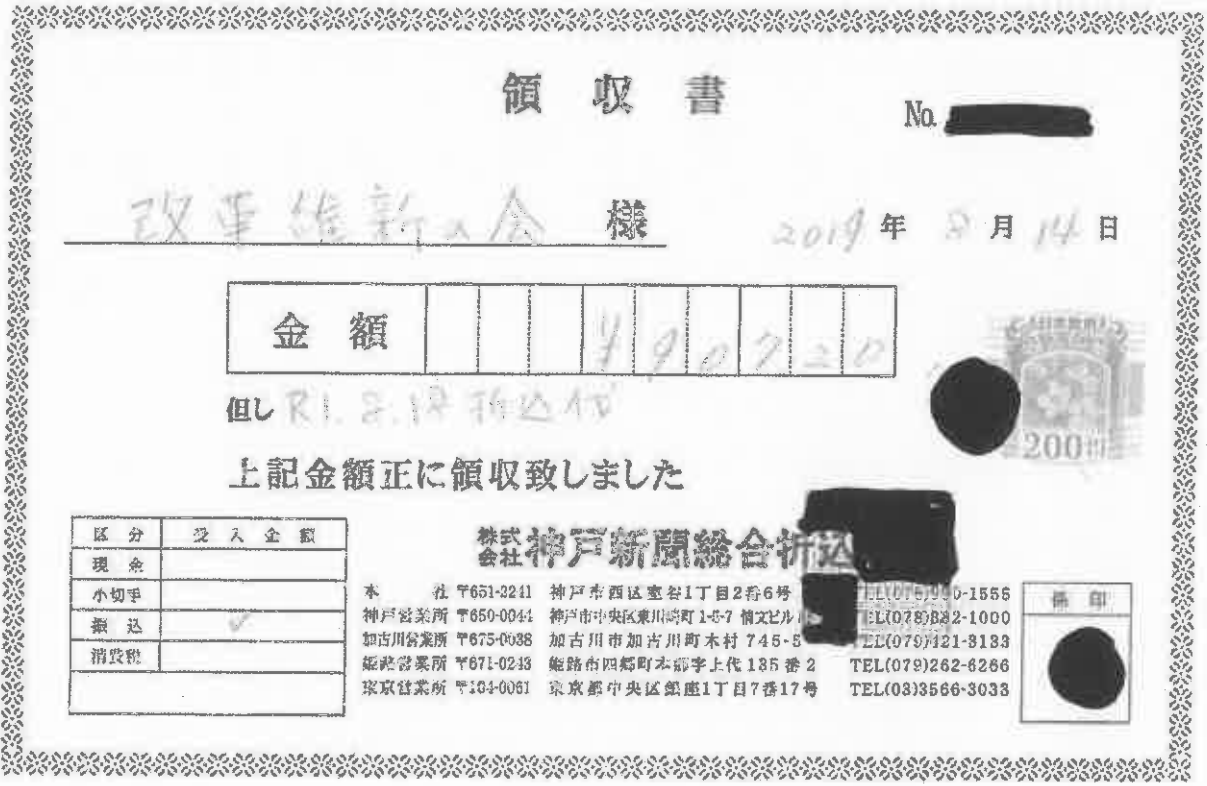 領収書
No.
改革維新の会 様
2019年 8月 14日
金額 ¥490720
但し R1.8.18 折込代
上記金額正に領収致しました
200円
区分 受入金額
現金
小切手
振込 ✓
消費税
株式会社 神戸新聞総合折込
本社 〒651-2241 神戸市西区室谷1丁目2番6号 TEL(078)990-1555
神戸営業所 〒650-0044 神戸市中央区東川崎町1-5-7 情文ビル TEL(078)382-1000
加古川営業所 〒675-0038 加古川市加古川町木村745-5 TEL(079)421-3133
姫路営業所 〒671-0243 姫路市四郷町本郷字上代135番2 TEL(079)262-6266
東京営業所 〒104-0061 東京都中央区銀座1丁目7番17号 TEL(03)3566-3033
係印